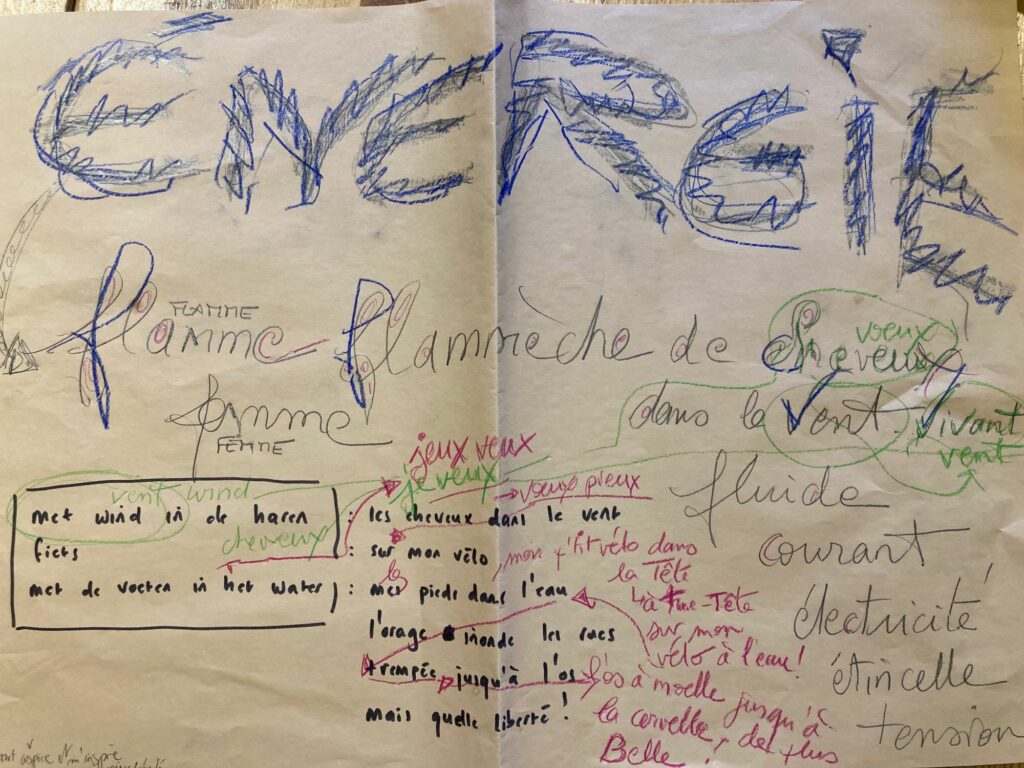 ÉNERGIE
FLAMME
flamme-flammèche de cheveux
vœux
femme
FEMME
dans le vent. Vivant
vent
jeux veux
je veux
vœux pieux
vent wind
met wind in de haren : les cheveux dans le vent
cheveux
fiets : sur mon vélo
met de voeten in het water : mes pieds dans l'eau
la
l'orage inonde les rues
trempée jusqu'à l'os
mais quelle liberté !
mon p'tit vélo dans
la Tête
à Tue-Tête
sur mon
vélo à l'eau !
l'os à moelle jusqu'à
la cervelle, de plus
Belle !
fluide
courant
électricité
étincelle
tension